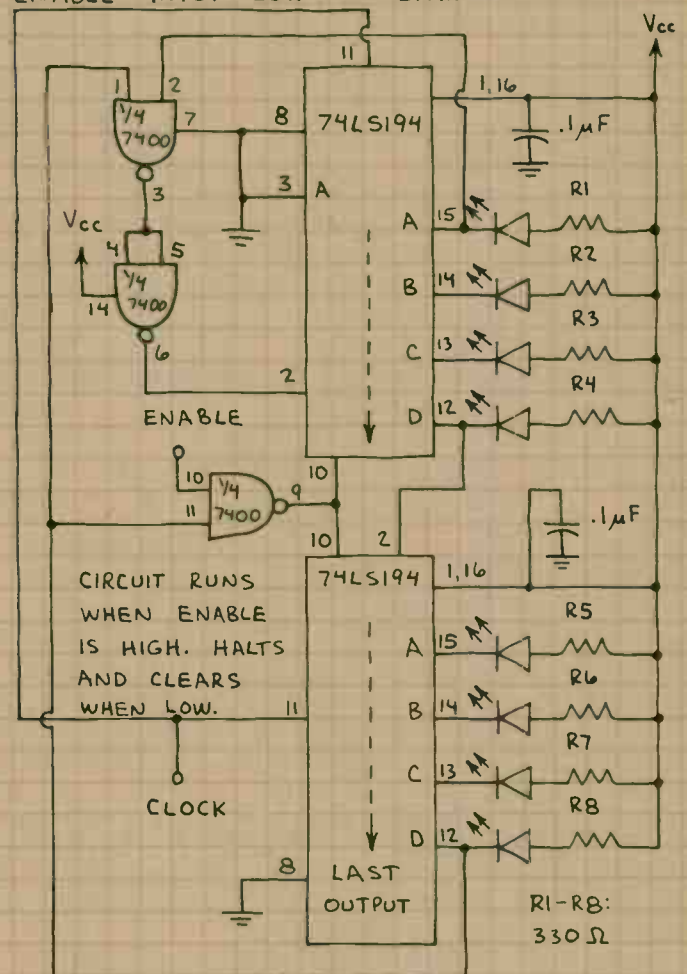 11
Vcc
1
2
1/4
7400
7
8
74LS194
1,16
.1µF
3
A
3
Vcc
4
5
1/4
7400
14
6
2
A
15
R1
B
14
R2
C
13
R3
D
12
R4
ENABLE
10
11
1/4
7400
9
10
10
2
74LS194
1,16
.1µF
CIRCUIT RUNS
WHEN ENABLE
IS HIGH. HALTS
AND CLEARS
WHEN LOW.
11
CLOCK
A
15
R5
B
14
R6
C
13
R7
D
12
R8
8
LAST
OUTPUT
R1-R8:
330 Ω